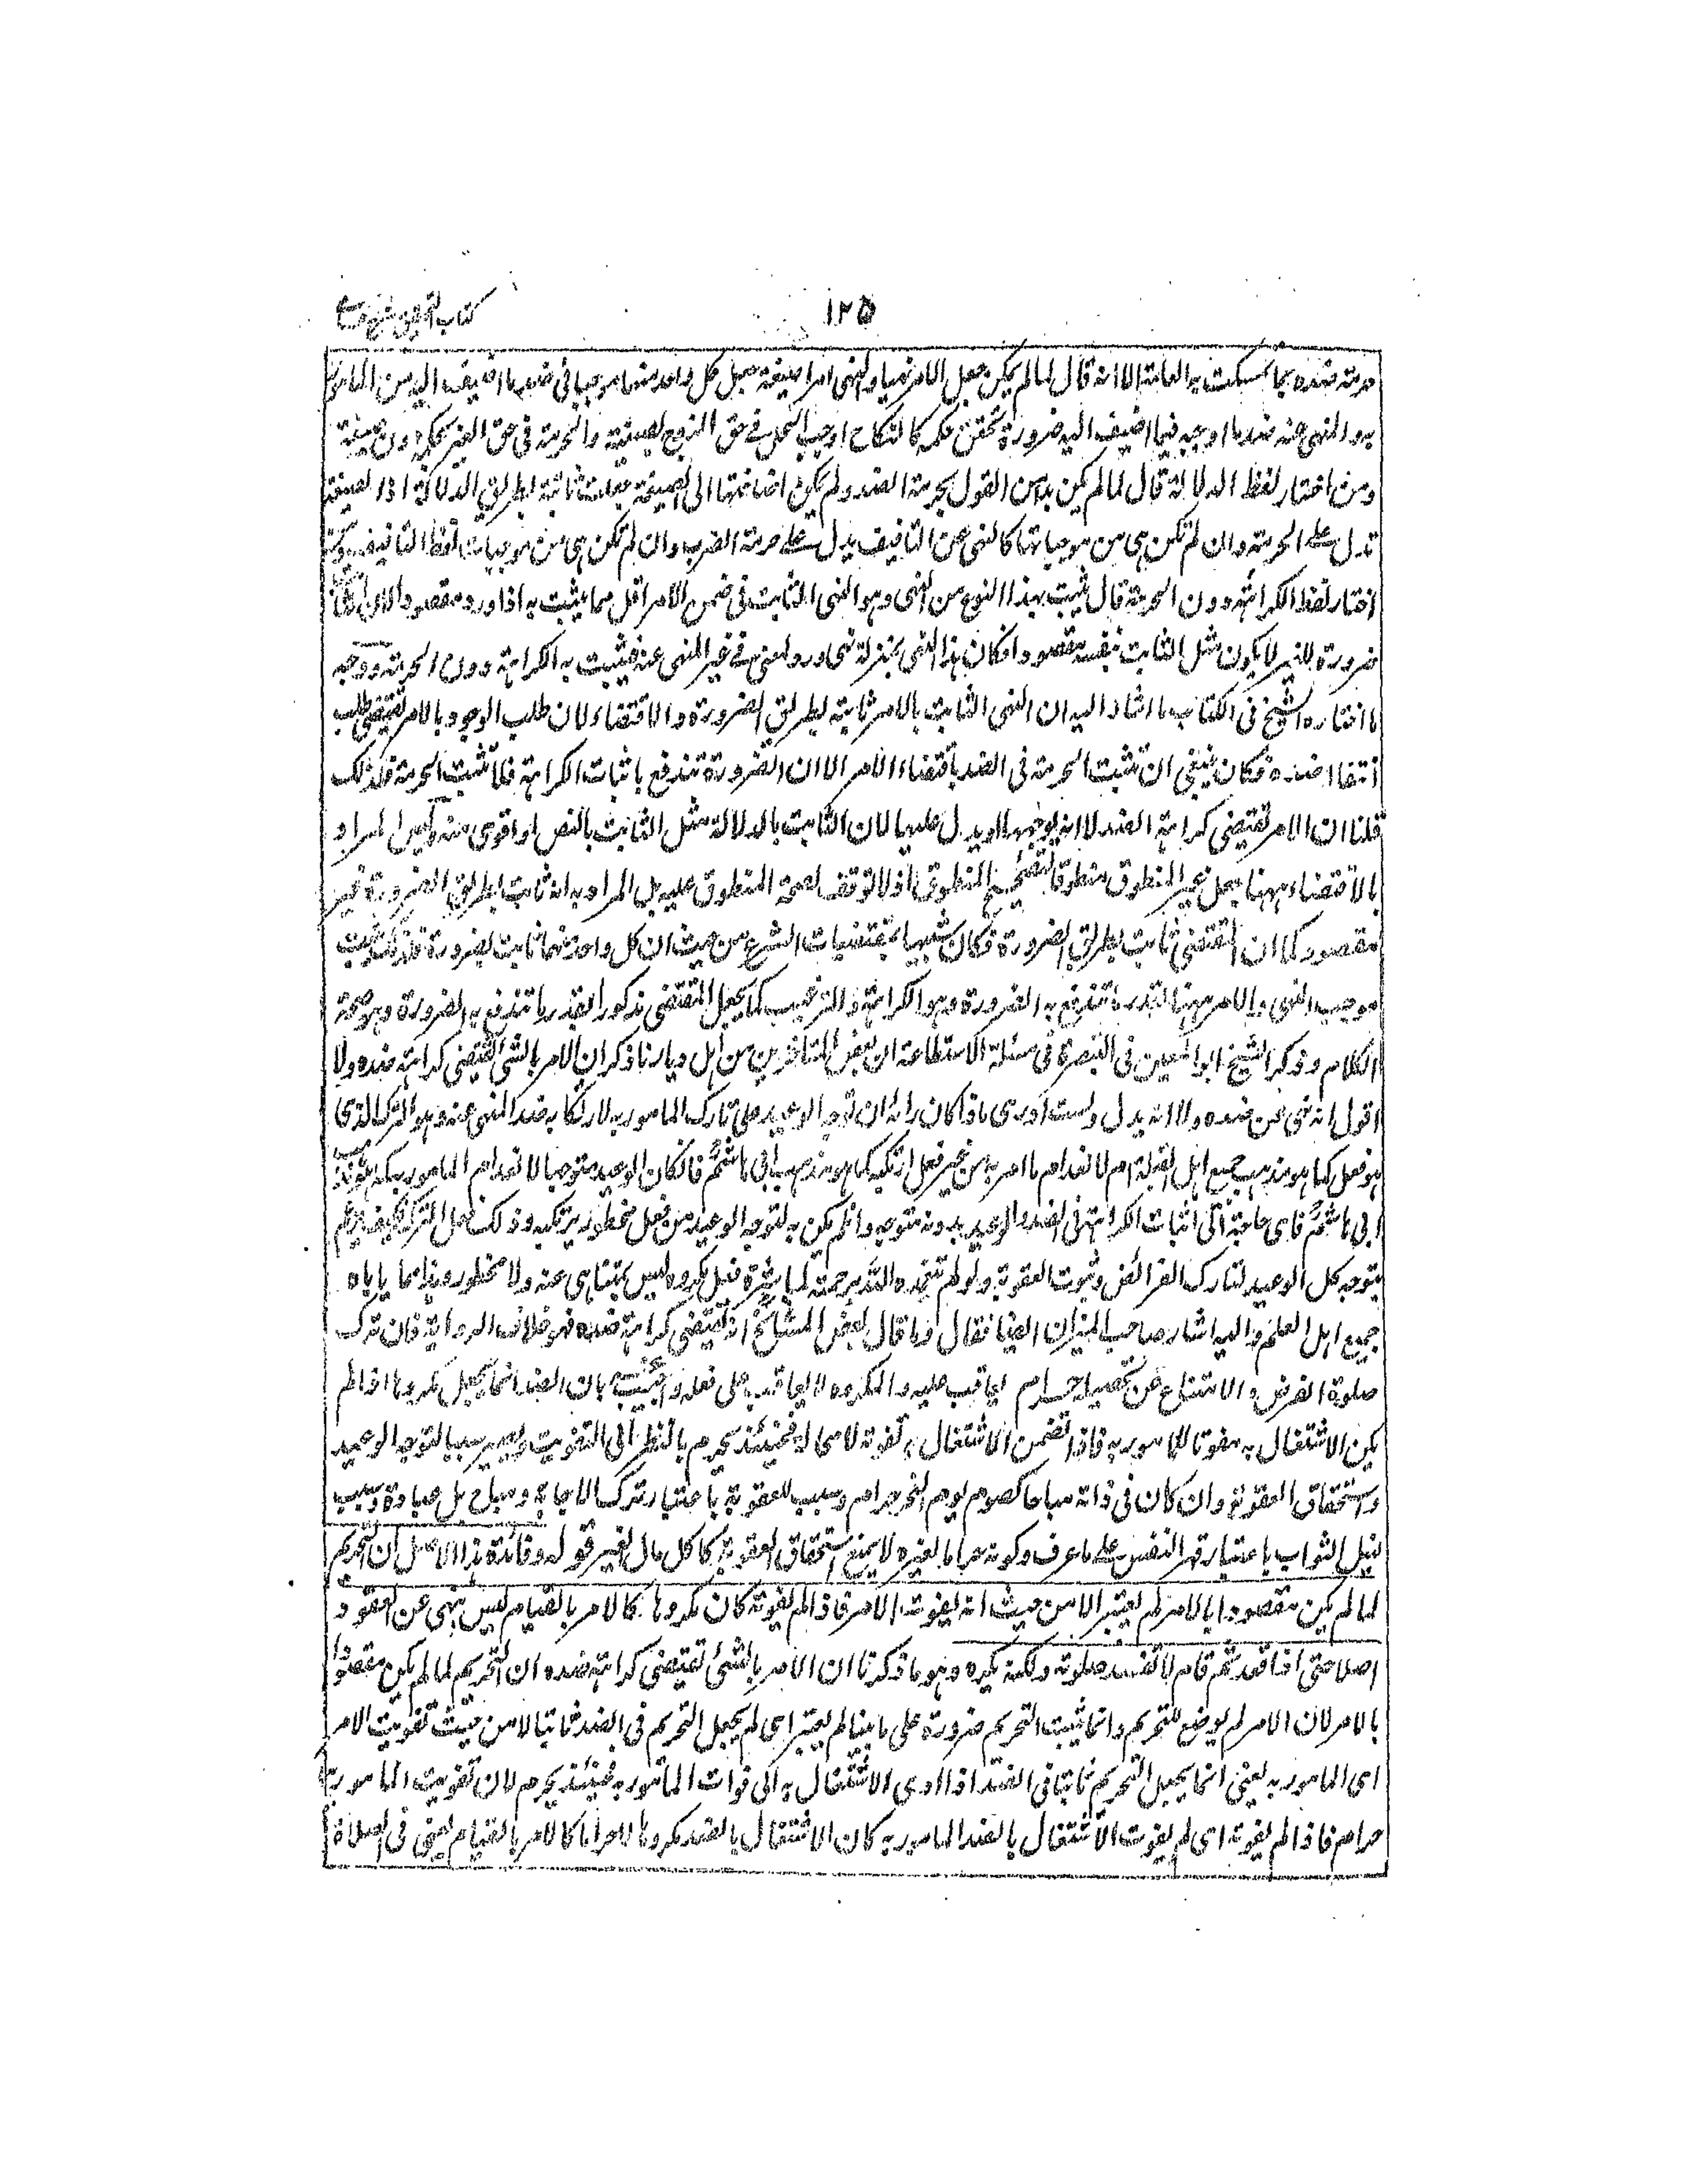 ١٢٥
حرمة ضده بما تمسكت به العامة الا انه قال لما لم يكن جعل الامر نهيا والنهى امرا صيغة جعل كل واحد منهما موجبا فى ضد ما اضيف اليه من المامور
به والمنهى عنه ضد ما اوجبه فيما اضيف اليه ضرورة تحقق حكمه كالنكاح اوجب الحل فى حق الزوج بصيغته والحرمة فى حق الغير بحكمه دون صيغته
ومن اختار لفظ الدلالة قال لما لم يكن بد من القول بحرمة الضد ولم يكن اضافتها الى الصيغة جعلت ثابتة بطريق الدلالة اذ الصيغة
تدل على الحرمة وان لم تكن هى من موجباتها كالنهى عن التافيف يدل على حرمة الضرب وان لم تكن هى من موجبات لفظ التافيف ومن
اختار لفظ الكراهة دون الحرمة قال يثبت بهذا النوع من النهى وهو النهى الثابت فى ضمن الامر اقل مما يثبت به اذا ورد مقصودا لان الثابت
ضرورة للغير لا يكون مثل الثابت بنفسه مقصودا فكان هذا النهى بمنزلة نهى ورد لمعنى فى غير المنهى عنه فيثبت به الكراهة دون الحرمة ووجه
ما اختاره الشيخ فى الكتاب ما اشار اليه ان النهى الثابت بالامر ثابت بطريق الضرورة والاقتضاء لان طلب الوجود بالامر يقتضى طلب
انتفاء ضده فكان ينبغى ان تثبت الحرمة فى الضد باقتضاء الامر الا ان الضرورة تندفع باثبات الكراهة فلا تثبت الحرمة فلذلك
قلنا ان الامر يقتضى كراهة الضد لا انه يوجبها او يدل عليها لان الثابت بالدلالة مثل الثابت بالنص او اقوى منه وليس المراد
بالاقتضاء ههنا جعل غير المنطوق منطوقا لتصحيح المنطوق اذ لا توقف لصحة المنطوق عليه بل المراد به انه ثابت بطريق الضرورة غير
مقصود كما ان المقتضى ثابت بطريق الضرورة فكان شبيها بمقتضيات الشرع من حيث ان كل واحد منهما ثابت بضرورة فلذلك يثبت
موجب النهى والامر ههنا بقدر ما تندفع به الضرورة وهو الكراهة والترغيب كما يجعل المقتضى مذكورا بقدر ما تندفع به الضرورة وهو صحة
الكلام وذكر الشيخ ابو المعين فى التبصرة فى مسئلة الاستطاعة ان بعض المتاخرين من اهل ديارنا ذكر ان الامر بالشئ يقتضى كراهة ضده ولا
اقول انه نهى عن ضده ولا انه يدل ولست ادرى ماذا كان رائه ان توجه الوعيد على تارك المامور به لارتكابه ضد المنهى عنه وهو الترك الذى
هو فعل كما هو مذهب جميع اهل القبلة ام لانعدام ما امر به من غير فعل ارتكبه كما هو مذهب ابى هاشم فان كان الوعيد متوجها لانعدام المامور به كما هو مذهب
ابى هاشم فاى حاجة الى اثبات الكراهة فى الضد والوعيد بدونه متوجه وان لم يكن بد لتوجه الوعيد من فعل محظور يرتكبه وذلك فعل الترك فكيف يزعم
بتوجه كل الوعيد لتارك الفرائض وثبوت العقوبة ولو لم تتغمده الله برحمته لمباشرة فعل مكروه ليس بمنهى عنه ولا محظور وهذا مما ياباه
جميع اهل العلم واليه اشار صاحب الميزان ايضا فقال وما قال بعض المشائخ انه يقتضى كراهة ضده فهو خلاف الرواية فان ترك
صلوة الفرض والامتناع عن تحصيله حرام يعاقب عليه والمكروه لا يعاقب على فعله واجيب عنه بان الضد انما يجعل مكروها اذا لم
يكن الاشتغال به مفوتا للمامور به فاذا تضمن الاشتغال به تفويته لا محالة فحينئذ يحرم بالنظر الى التفويت ويصير سببا لتوجه الوعيد
واستحقاق العقوبة وان كان فى ذاته مباحا كصوم يوم النحر حرام وسبب للعقوبة باعتبار ترك الاجابة ومباح بل عبادة وسبب
لنيل الثواب باعتبار قهر النفس على ما عرف وكونه حراما لغيره لا يمنع استحقاق العقوبة كاكل مال الغير قوله وفائدة هذا الاصل ان التحريم
لما لم يكن مقصودا بالامر لم يعتبر الا من حيث انه يفوت الامر فاذا لم يفوته كان مكروها كالامر بالقيام ليس بنهى عن القعود
اصلا حتى اذا قعد ثم قام لا تفسد صلوته ولكنه يكره وهو ما ذكرنا ان الامر بالشئ يقتضى كراهة ضده ان التحريم لما لم يكن مقصودا
بالامر لان الامر لم يوضع للتحريم وانما يثبت التحريم ضرورة على ما بينا لم يعتبر اى لم يجعل التحريم فى الضد ثابتا الا من حيث تفويت الامر
اى المامور به يعنى انما يجعل التحريم ثابتا فى الضد اذا ادى الاشتغال به الى فوات المامور به فحينئذ يحرم لان تفويت المامور به
حرام فاذا لم يفوته اى لم يفوت الاشتغال بالضد المامور به كان الاشتغال بالضد مكروها لا حراما كالامر بالقيام يعنى فى الصلاة